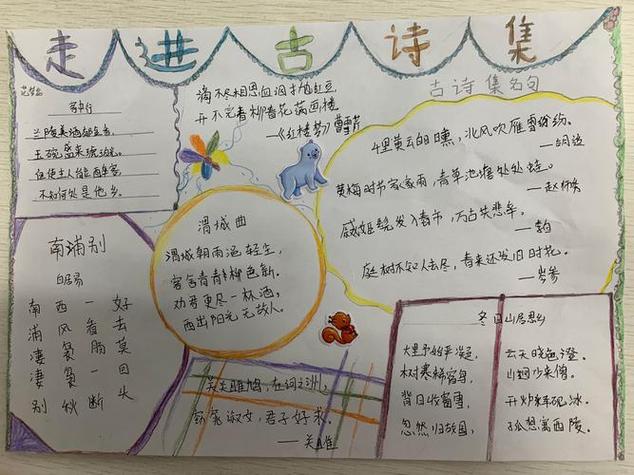 走进古诗集
客中行
兰陵美酒郁金香,
玉碗盛来琥珀光。
但使主人能醉客,
不知何处是他乡。
滴不尽相思血泪抛红豆
开不完春柳春花满画楼
—《红楼梦》曹雪芹
古诗集名句
千里黄云白日曛,北风吹雁雪纷纷。
—高适
黄梅时节家家雨,青草池塘处处蛙。
—赵师秀
庭树不知人去尽,春来还发旧时花。
—岑参
南浦别
白居易
南浦凄凄别
西风袅袅秋
一看肠一断
好去莫回头
渭城曲
渭城朝雨浥轻尘,
客舍青青柳色新。
劝君更尽一杯酒,
西出阳光无故人。
关关雎鸠,在河之洲,
窈窕淑女,君子好求。
—关雎
冬日山居思乡
大里予始平凝,
云天晓色澄。
树寒稀宿鸟,
山迥少来僧。
背日收窗雪,
开炉释砚冰。
忽然归故国,
孤想寓西陵。